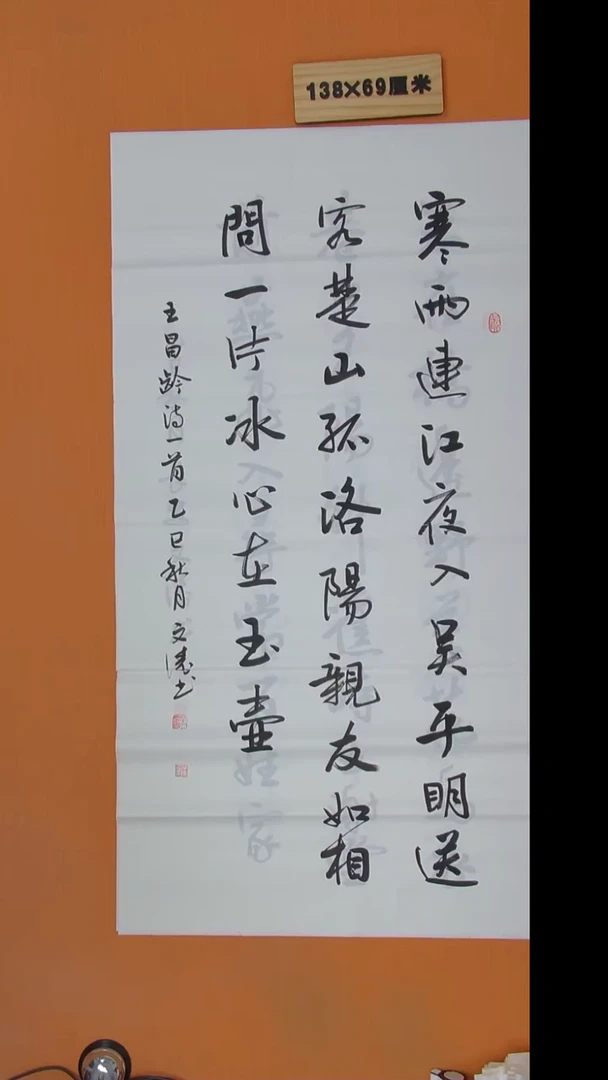 138×69厘米
寒雨連江夜入吴平明送
客楚山孤洛陽親友如相
問一片冰心在玉壺
王昌龄诗一首乙巳秋月文涛书